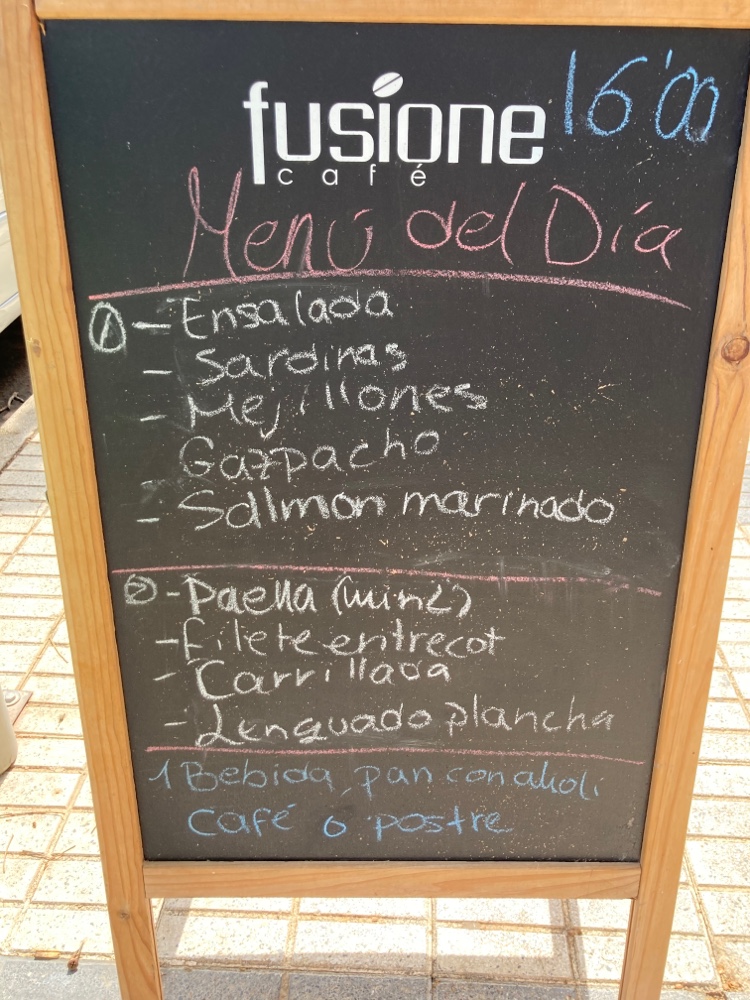 fusione
café
16'00
Menú del Día
① - Ensalada
- Sardinas
- Mejillones
- Gazpacho
- Salmon marinado
② - Paella (min 2)
- Filete entrecot
- Carrillada
- Lenguado plancha
1 Bebida, pan con alioli
Café o postre